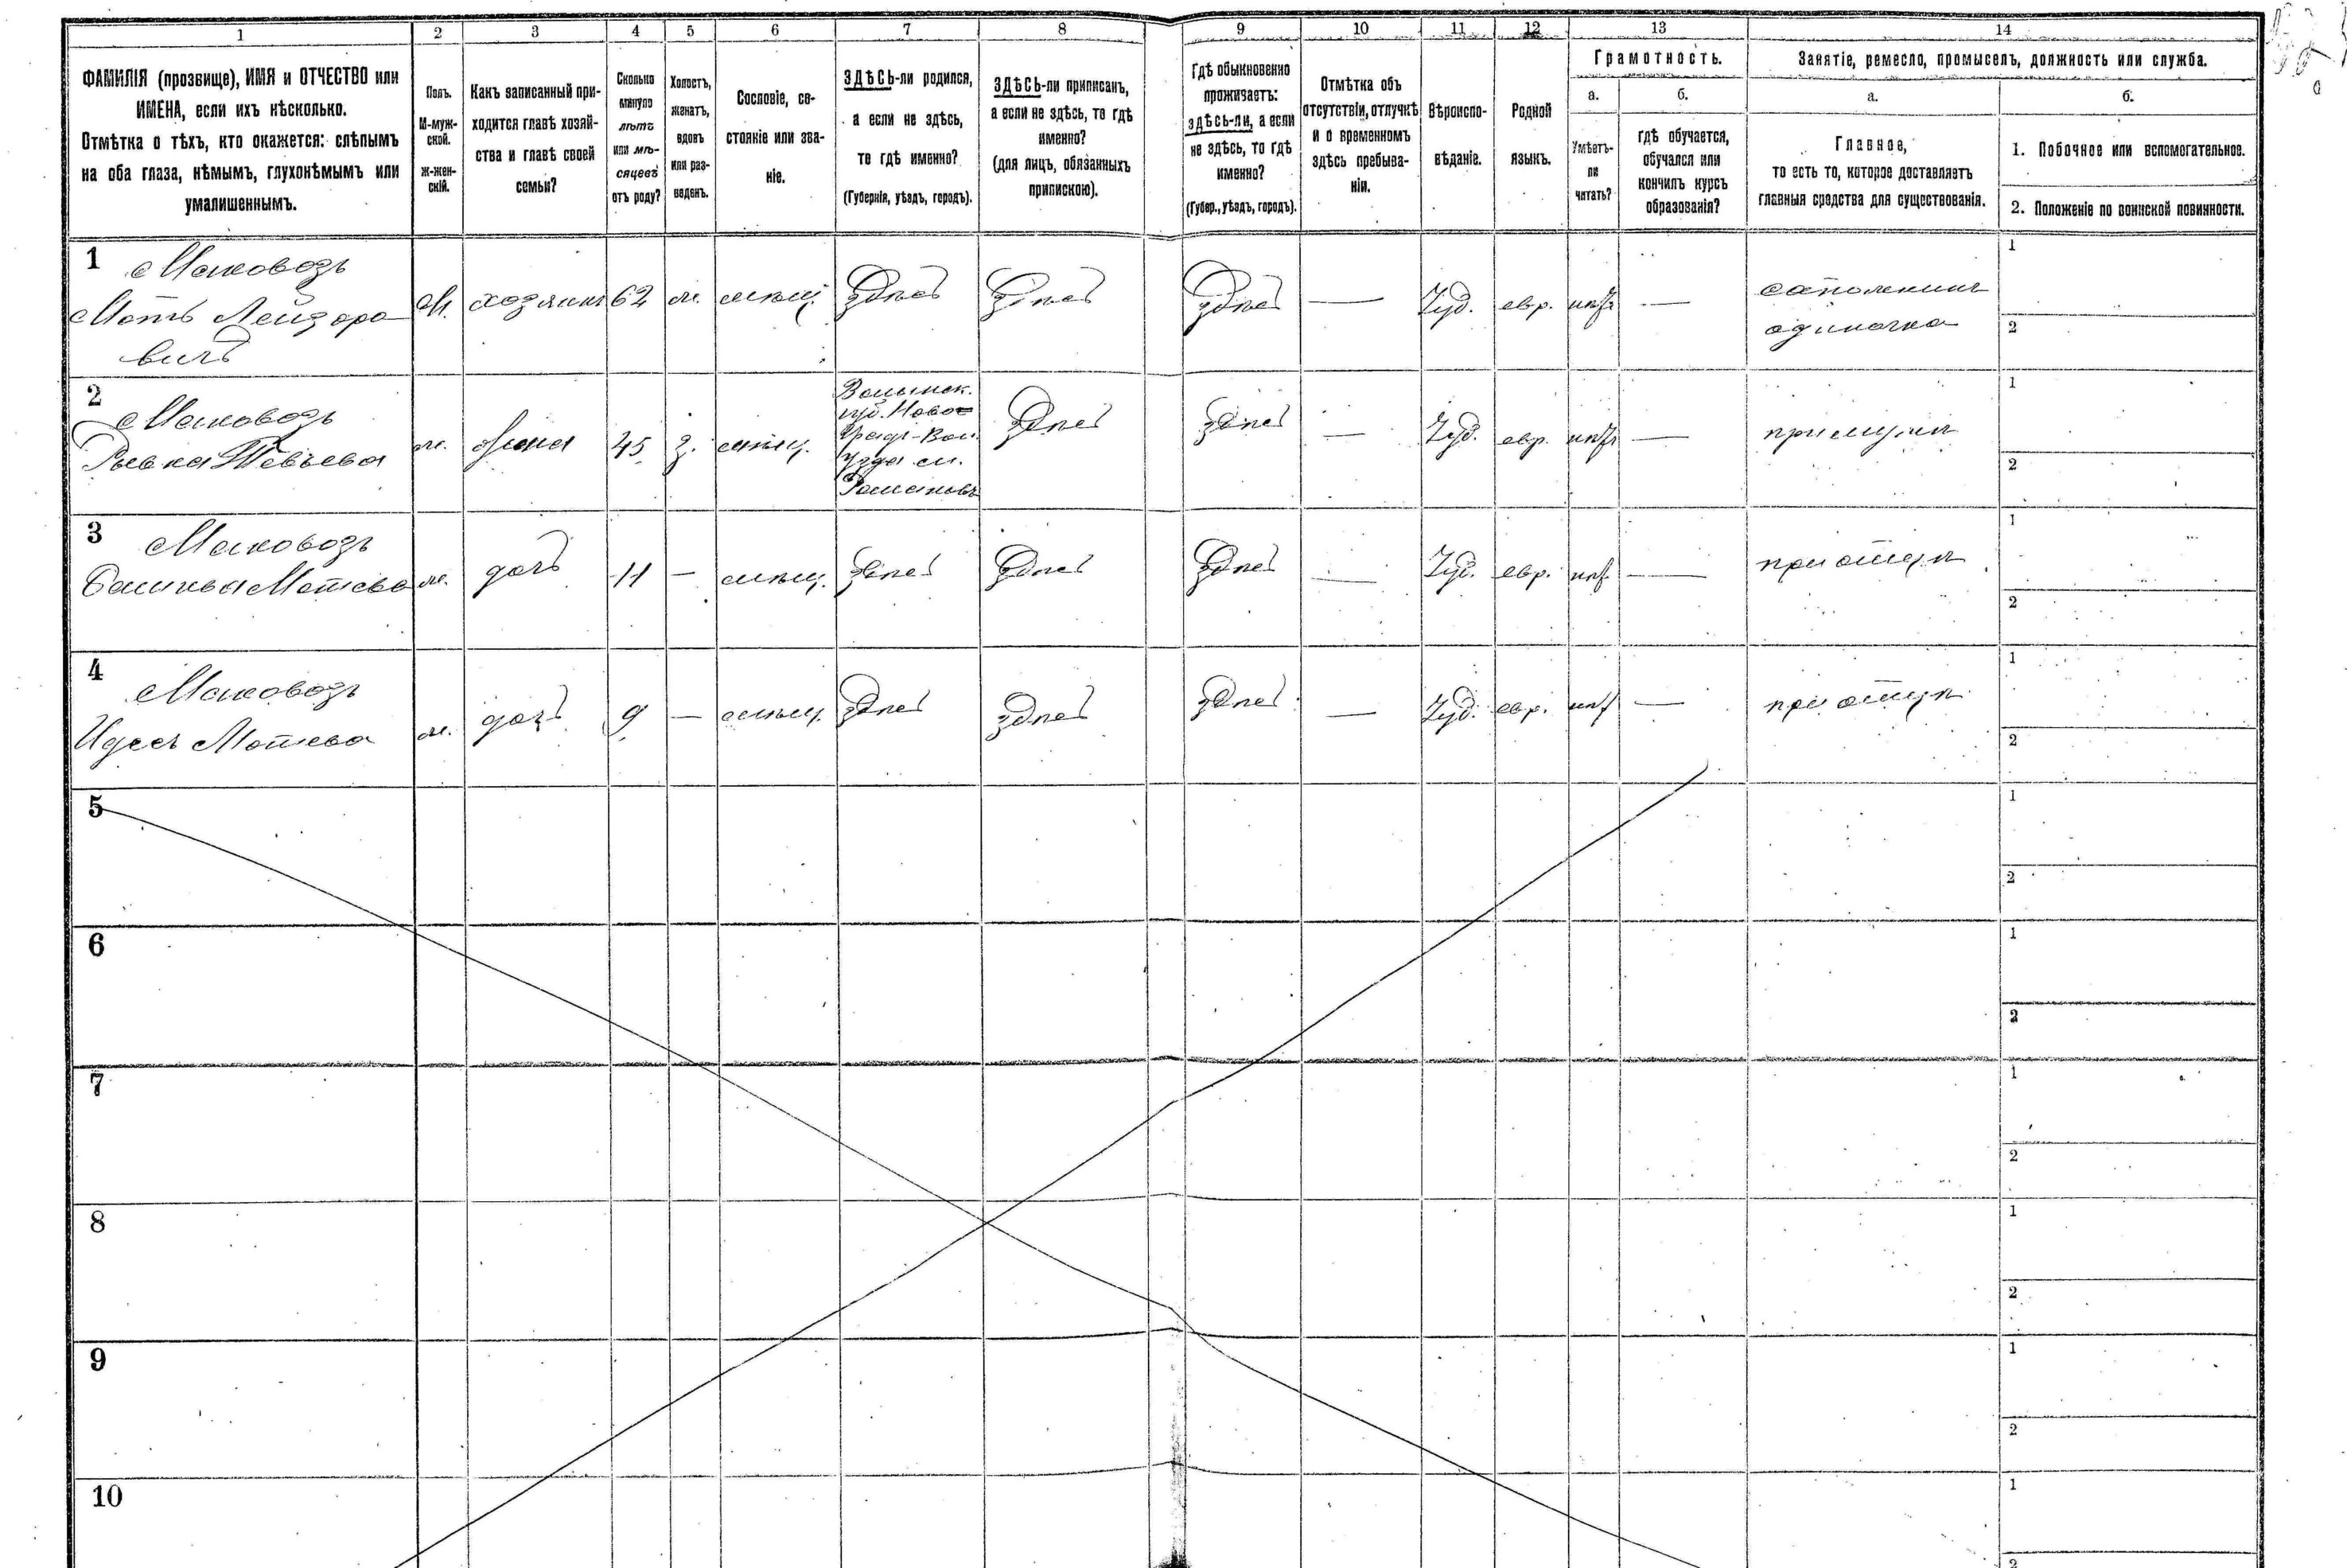 1 2 3 4 5 6 7 8 9 10 11 12 13 14
ФАМИЛІЯ (прозвище), ИМЯ и ОТЧЕСТВО или
ИМЕНА, если ихъ нѣсколько.
Отмѣтка о тѣхъ, кто окажется: слѣпымъ
на оба глаза, нѣмымъ, глухонѣмымъ или
умалишеннымъ.
Полъ.
М-муж-
ской.
ж-жен-
скій.
Какъ записанный при-
ходится главѣ хозяй-
ства и главѣ своей
семьи?
Сколько
минуло
лѣтъ
или мѣ-
сяцевъ
отъ роду?
Холостъ,
женатъ,
вдовъ
или раз-
веденъ.
Сословіе, со-
стояніе или зва-
ніе.
ЗДѢСЬ-ли родился,
а если не здѣсь,
то гдѣ именно?
(Губернія, уѣздъ, городъ).
ЗДѢСЬ-ли приписанъ,
а если не здѣсь, то гдѣ
именно?
(для лицъ, обязанныхъ
припискою).
Гдѣ обыкновенно
проживаетъ:
здѣсь-ли, а если
не здѣсь, то гдѣ
именно?
(Губер., уѣздъ, городъ).
Отмѣтка объ
отсутствіи, отлучкѣ
и о временномъ
здѣсь пребыва-
ніи.
Вѣроиспо-
вѣданіе.
Родной
языкъ.
Грамотность.
а.
Умѣетъ-
ли
читать?
б.
гдѣ обучается,
обучался или
кончилъ курсъ
образованія?
Занятіе, ремесло, промыселъ, должность или служба.
а.
Главное,
то есть то, которое доставляетъ
главныя средства для существованія.
б.
1. Побочное или вспомогательное.
2. Положеніе по воинской повинности.
1 Маковозъ
Моть Лейзоро
вичъ
М.
хозяинъ
62
ж.
мѣщ.
здѣсь
здѣсь
здѣсь
—
Іуд.
евр.
нѣтъ
—
сапожникъ
одиночка
1
2
2 Маковозъ
Рывка Тевьева
ж.
жена
45
з.
мѣщ.
Волынск.
губ. Ново-
град-Вол.
уѣзда м.
Романовъ
здѣсь
здѣсь
—
Іуд.
евр.
нѣтъ
—
при мужѣ
1
2
3 Маковозъ
Мотева
ж.
дочь
11
—
мѣщ.
здѣсь
здѣсь
здѣсь
—
Іуд.
евр.
нѣт
—
при отцѣ
1
2
4 Маковозъ
Идесъ Мотева
ж.
дочь
9
—
мѣщ.
здѣсь
здѣсь
здѣсь
—
Іуд.
евр.
нѣт
—
при отцѣ
1
2
5
1
2
6
1
2
7
1
2
8
1
2
9
1
2
10
1
2